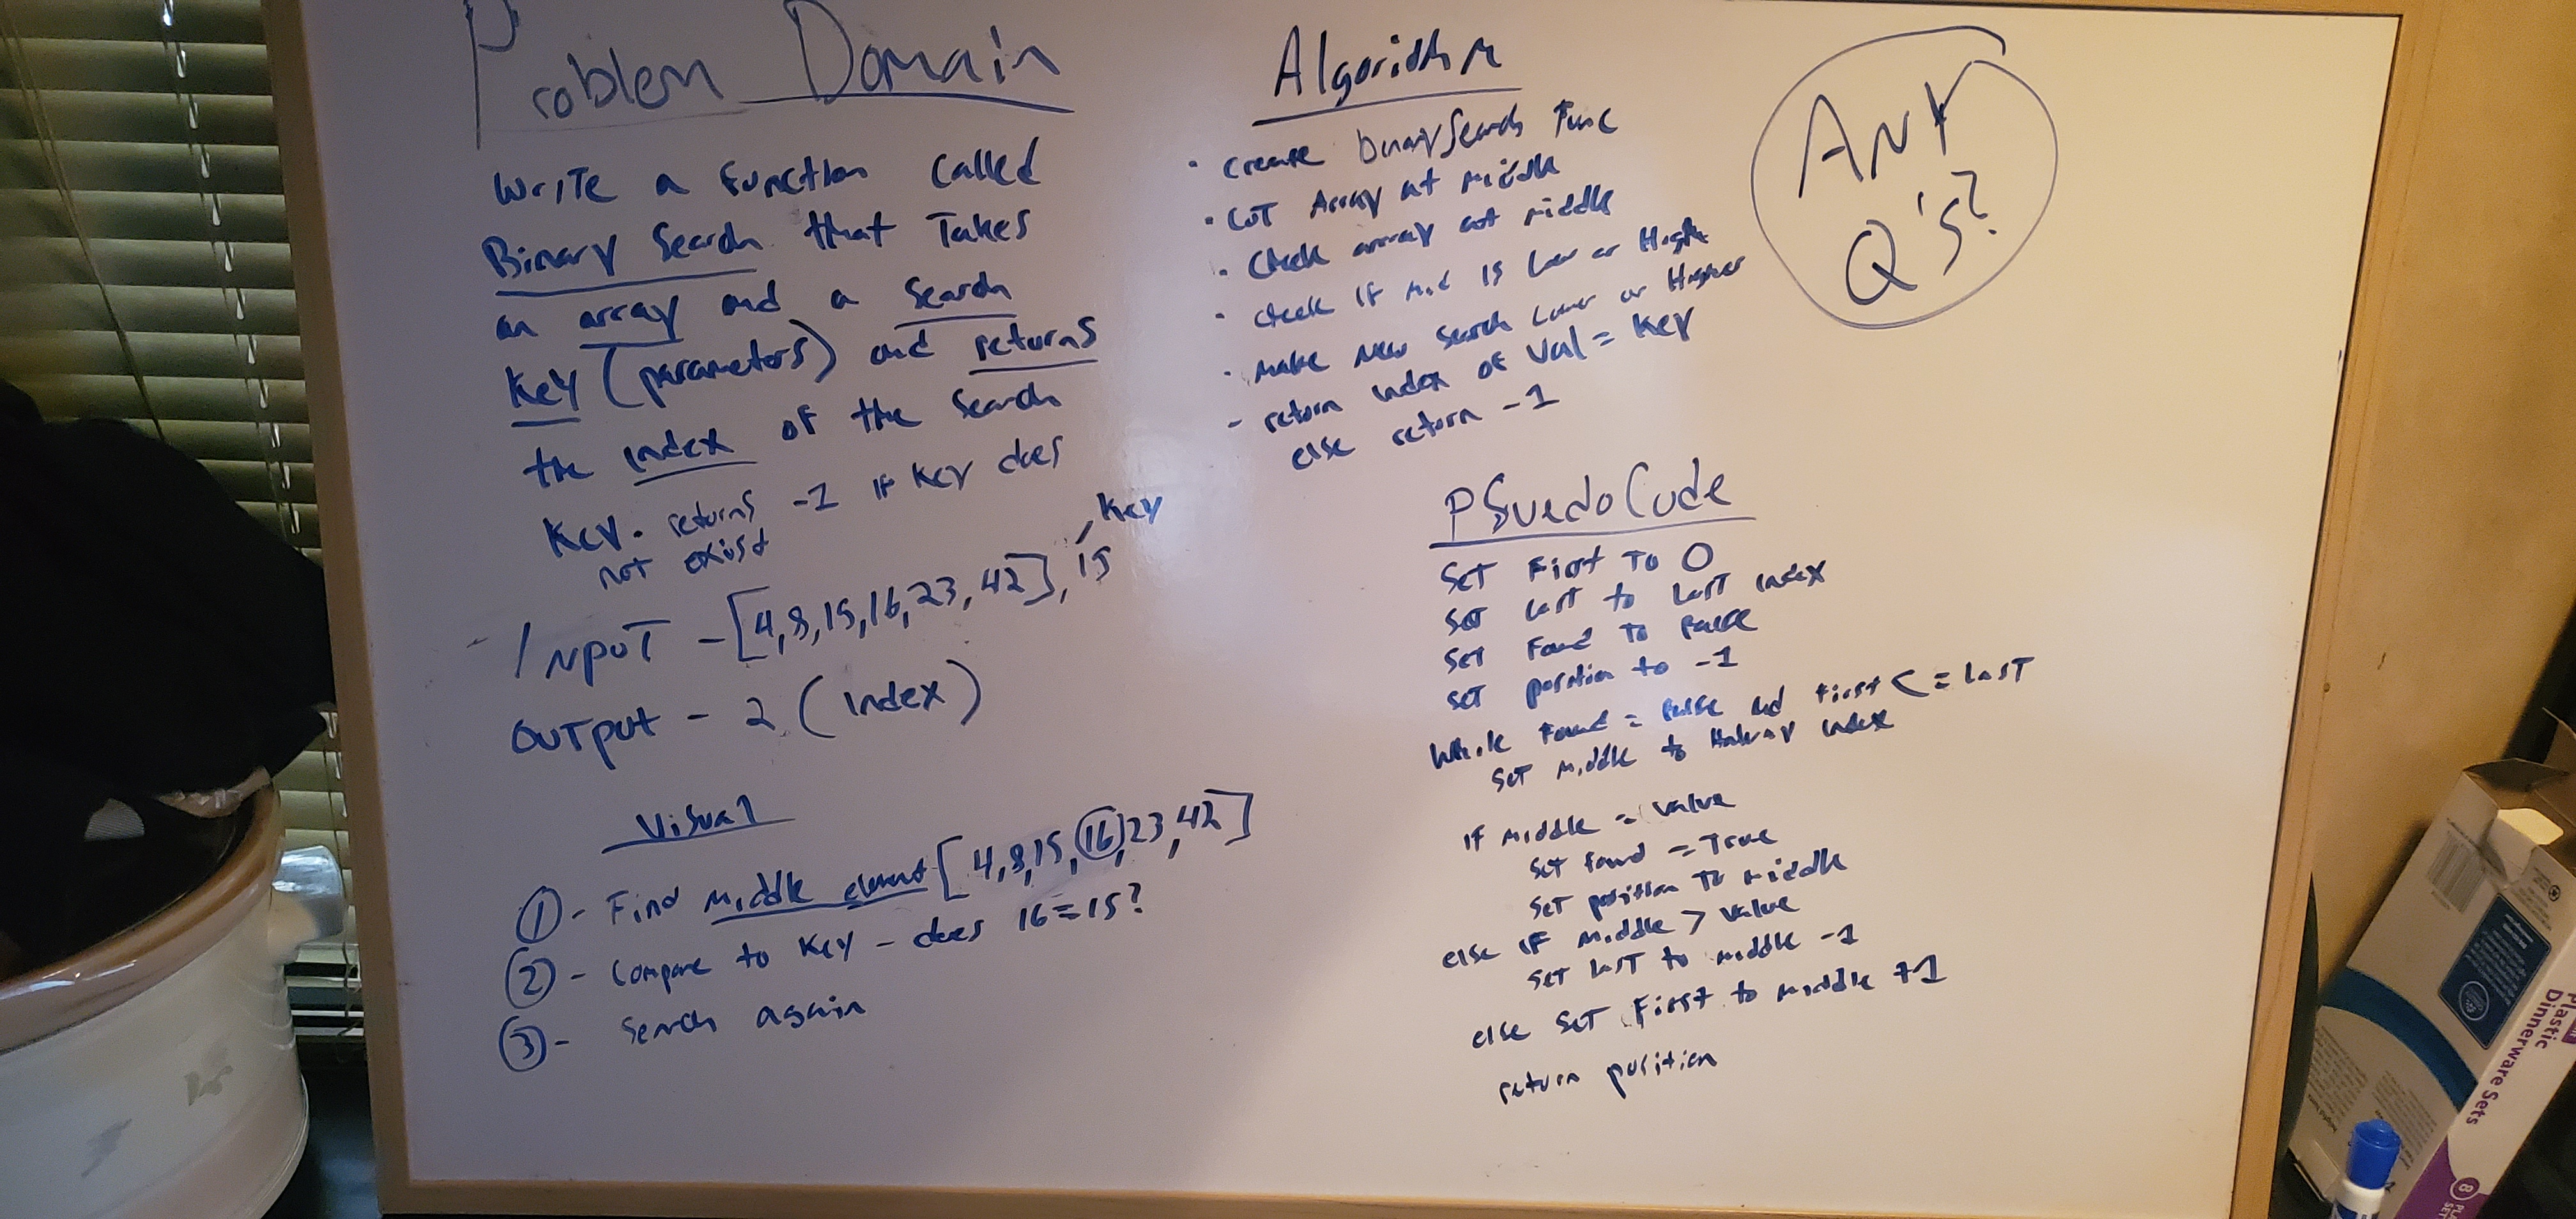 Problem Domain
Write a function called
Binary Search that Takes
an array and a Search
Key (parameters) and returns
the index of the search
Key. returns -1 if Key does
not exist
Key
INPUT - [4,8,15,16,23,42], 15
OUTPUT - 2 (index)
Visual
① - Find middle element [4,8,15,16,23,42]
② - Compare to Key - does 16=15?
③ - Search again
Algorithm
· create binarySearch Func
· CUT Array at middle
· Check array at middle
· check if mid is Low or High
· make new search Lower or Higher
- return index of Val = Key
else return -1
PSuedoCode
Set First To 0
Set Last to Last index
Set Found To False
Set position to -1
While Found = False and first <= Last
Set Middle to Halway index
if middle = value
Set found = True
Set position To middle
else if middle > value
Set last to middle -1
else Set First to middle +1
return position
ANY
Q's?
Plastic
Dinnerware Sets
8